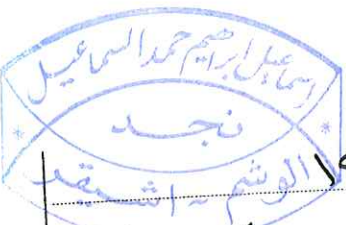 إسماعيل ابراهيم حمد السماعيل
نجد
الوشم - اشيقر